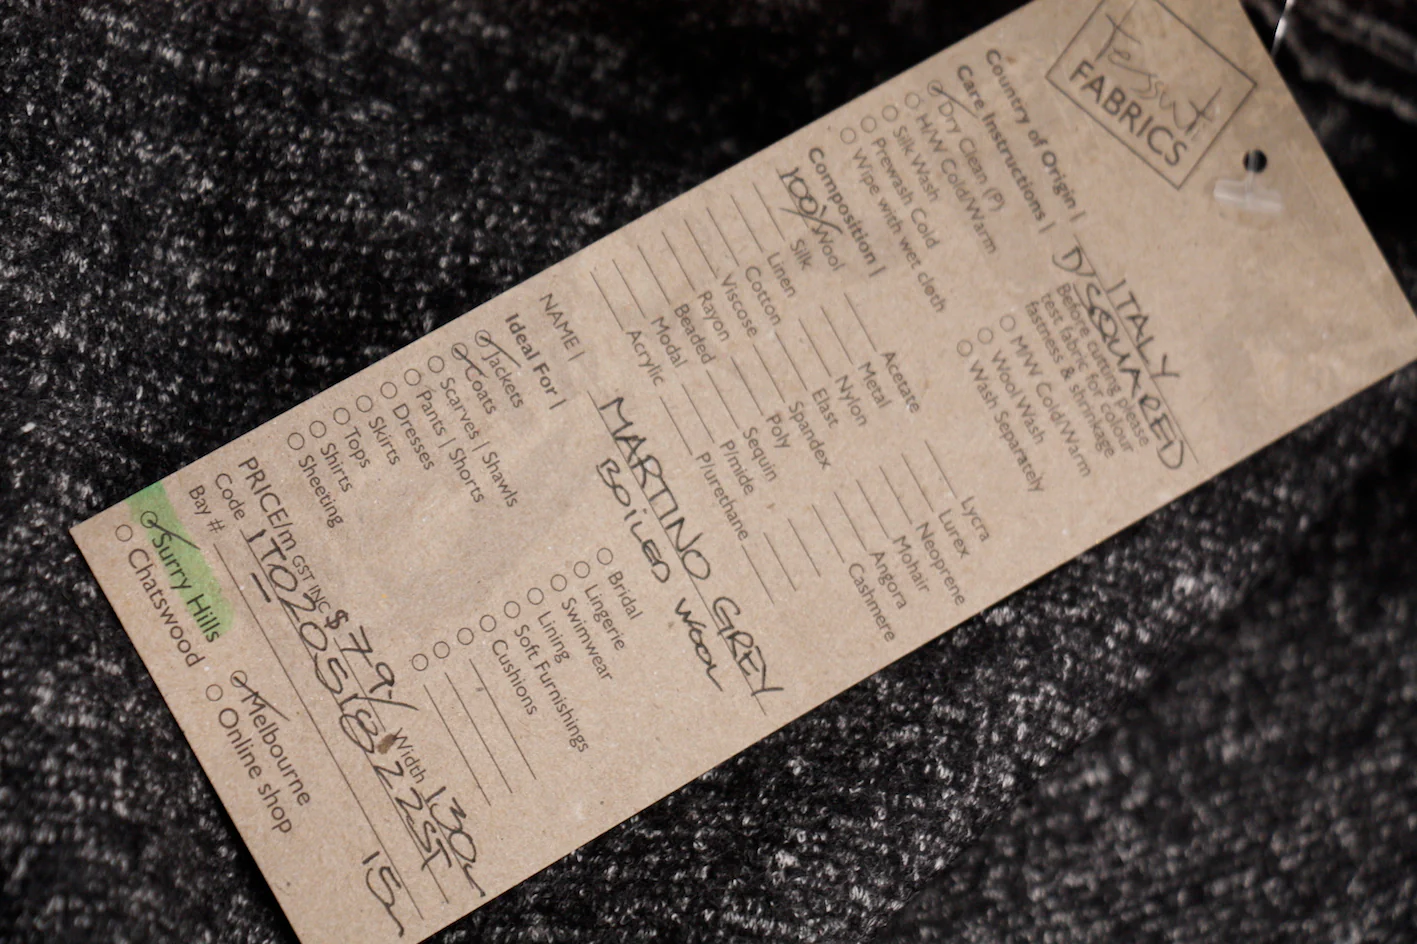 Tessuti
FABRICS
Country of Origin | ITALY
DISQUARED
Care Instructions |
Before cutting please
test fabric for colour
fastness & shrinkage
Dry Clean (P)
H/W Cold/Warm
M/W Cold/Warm
Silk Wash
Wool Wash
Prewash Cold
Wash Separately
Wipe with wet cloth
Composition |
100% Wool
Acetate
Lycra
Silk
Metal
Lurex
Linen
Nylon
Neoprene
Cotton
Elast
Mohair
Viscose
Spandex
Angora
Rayon
Poly
Cashmere
Beaded
Sequin
Modal
P/mide
Acrylic
P/urethane
NAME | MARTINO GREY
BOILED WOOL
Ideal For |
Jackets
Bridal
Coats
Lingerie
Scarves | Shawls
Swimwear
Pants | Shorts
Lining
Dresses
Soft Furnishings
Skirts
Cushions
Tops
Shirts
Sheeting
PRICE/m GST INC $79/ Width 130
Code
Bay #
15m
Surry Hills
Melbourne
Chatswood
Online shop